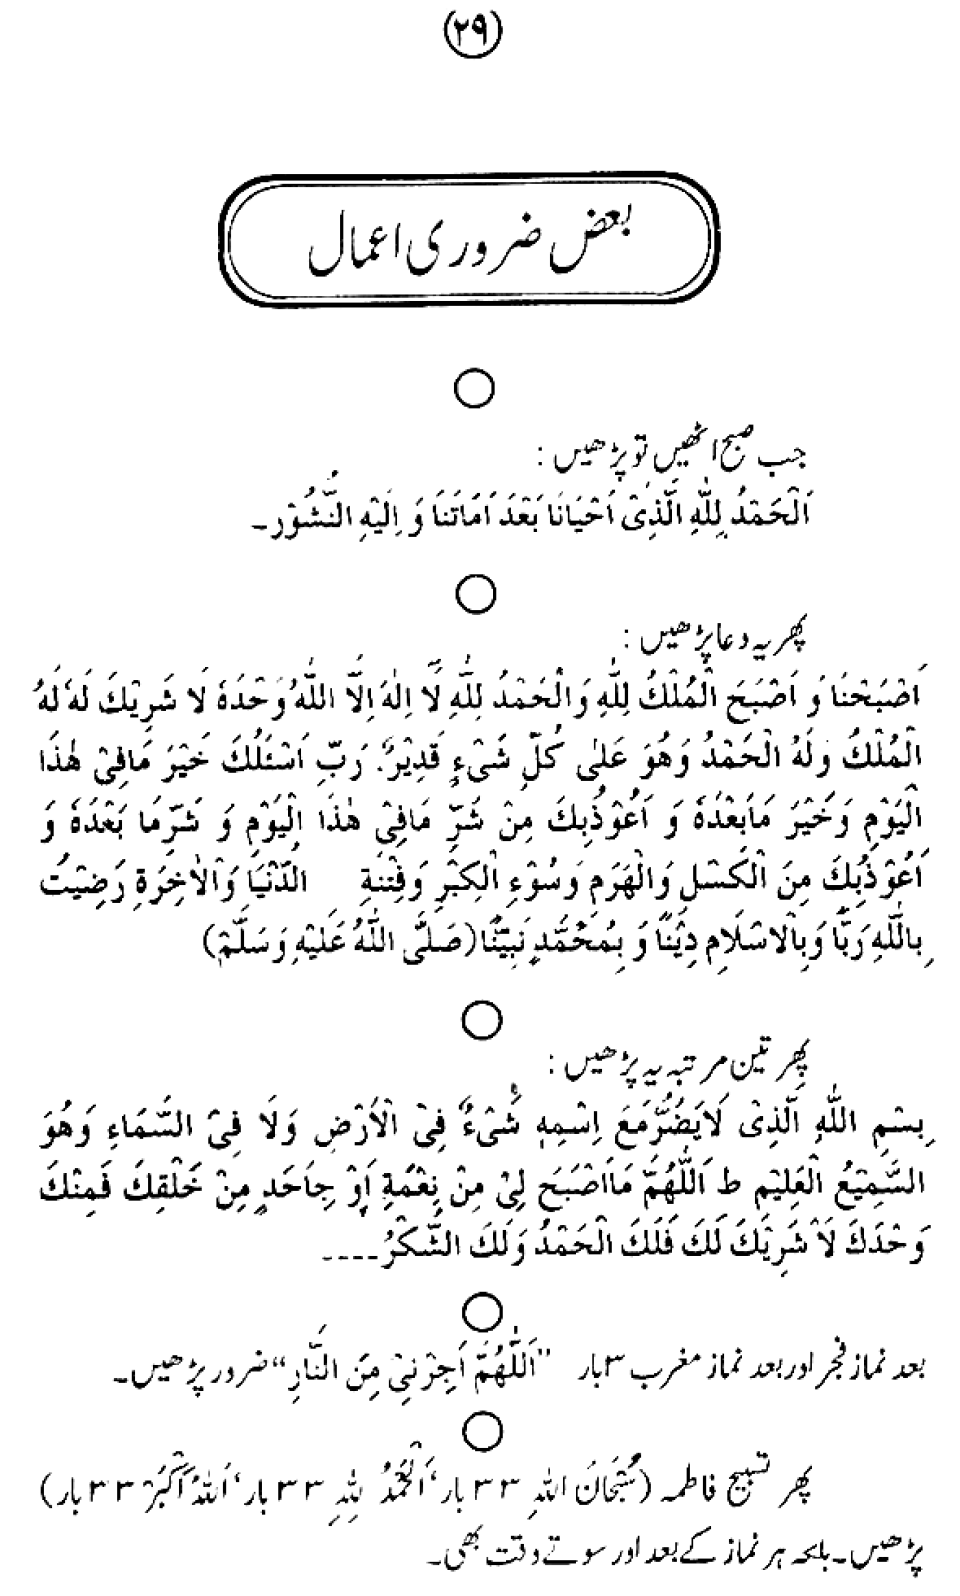 (۲۹)
بعض ضروری اعمال
جب صبح اٹھیں تو پڑھیں:
اَلْحَمْدُ لِلّٰهِ الَّذِیْ اَحْیَانَا بَعْدَ اَمَاتَنَا وَ اِلَیْهِ النُّشُوْر۔
پھر یہ دعا پڑھیں:
اَصْبَحْنَا وَ اَصْبَحَ الْمُلْكُ لِلّٰهِ وَالْحَمْدُ لِلّٰهِ لَا اِلٰهَ اِلَّا اللّٰهُ وَحْدَهٗ لَا شَرِیْكَ لَهٗ لَهُ
الْمُلْكُ وَلَهُ الْحَمْدُ وَهُوَ عَلٰی كُلِّ شَیْءٍ قَدِیْرٌ۔ رَبِّ اَسْئَلُكَ خَیْرَ مَافِیْ هٰذَا
الْیَوْمِ وَخَیْرَ مَابَعْدَهٗ وَ اَعُوْذُبِكَ مِنْ شَرِّ مَافِیْ هٰذَا الْیَوْمِ وَ شَرِّمَا بَعْدَهٗ وَ
اَعُوْذُبِكَ مِنَ الْكَسْلِ وَالْهَرَمِ وَسُوْءِ الْكِبْرِ وَفِتْنَةِ الدُّنْیَا وَالْاٰخِرَةِ رَضِیْتُ
بِاللّٰهِ رَبًّا وَبِالْاِسْلَامِ دِیْنًا وَ بِمُحَمَّدٍ نَبِیًّنَا (صَلَّی اللّٰهُ عَلَیْهِ وَسَلَّمْ)
پھر تین مرتبہ یہ پڑھیں:
بِسْمِ اللّٰهِ الَّذِیْ لَایَضُرُّمَعَ اِسْمِهٖ شَیْءٌ فِیْ الْأَرْضِ وَلَا فِیْ السَّمَاءِ وَهُوَ
السَّمِیْعُ الْعَلِیْمِ ط اَللّٰهُمَّ مَااَصْبَحَ لِیْ مِنْ نِعْمَةٍ أَوْ جِاَحَدٍ مِنْ خَلْقِكَ فَمِنْكَ
وَحْدَكَ لَاْ شَرِیْكَ لَكَ فَلَكَ الْحَمْدُ وَلَكَ الشُّكْرُ۔۔۔۔
بعد نماز فجر اور بعد نماز مغرب ۳ بار ”اَللّٰهُمَّ اَجِرْنِیْ مِنَ النَّارِ“ ضرور پڑھیں۔
پھر تسبیح فاطمہ (سُبْحَانَ اللهِ ۳۳ بار‘ اَلْحَمْدُ لِلهِ ۳۳ بار‘ اَللهُ اَكْبَرْ ۳۳ بار)
پڑھیں۔ بلکہ ہر نماز کے بعد اور سوتے وقت بھی۔